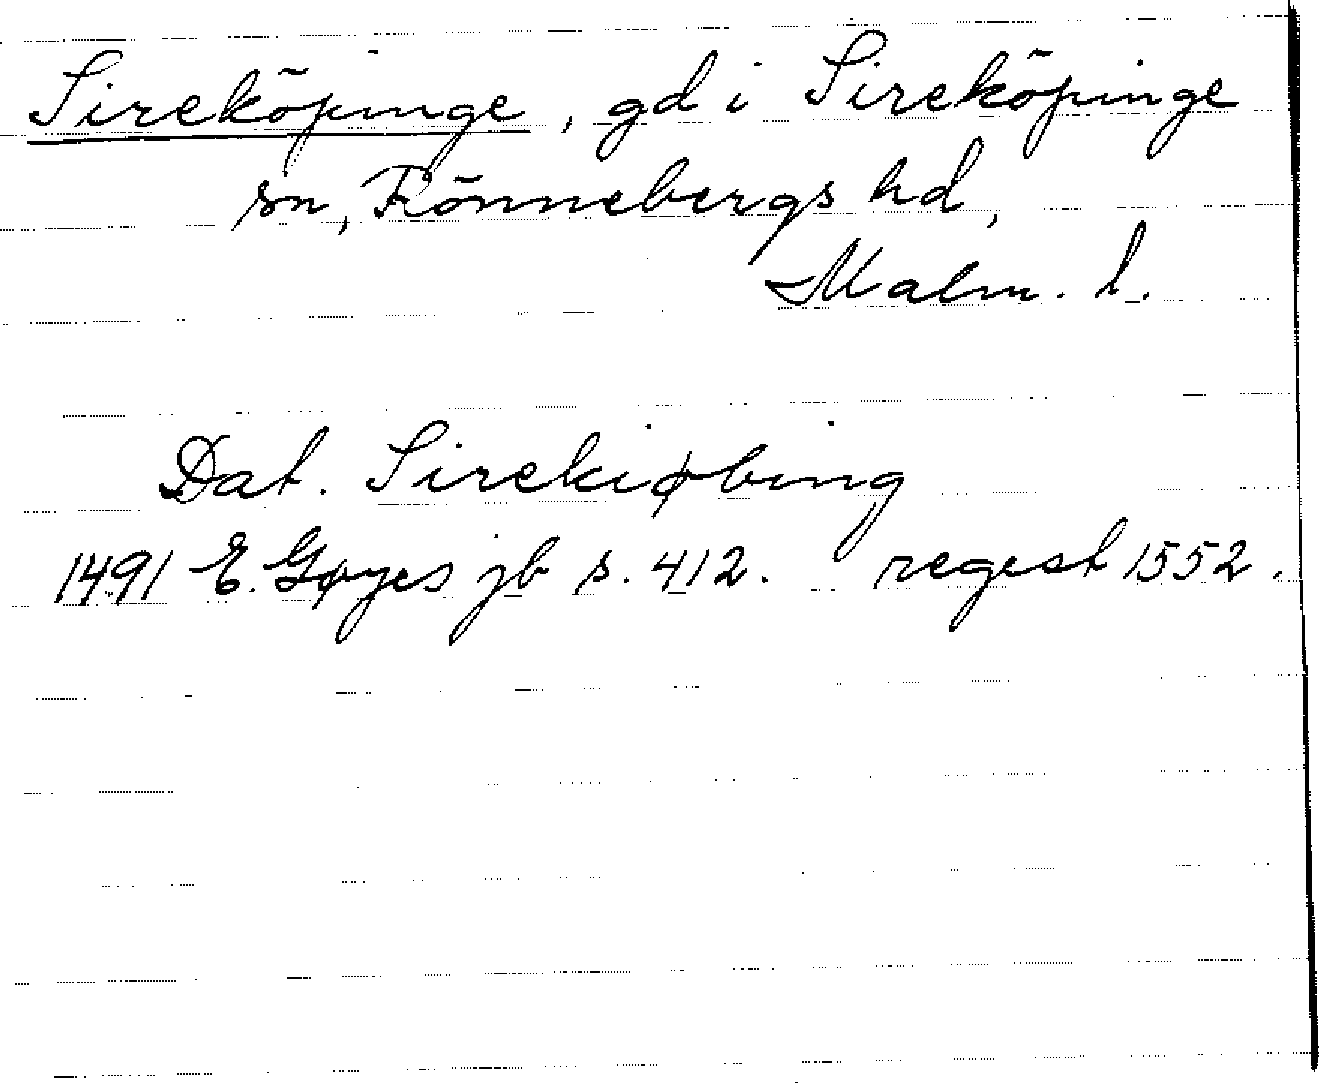 Sireköpinge, gd i Sireköpinge
sn, Rönnebergs hd,
Malm. l.
Dat. Sirekiøbing
1491 E. Gøyes jb s. 412. regest 1552.